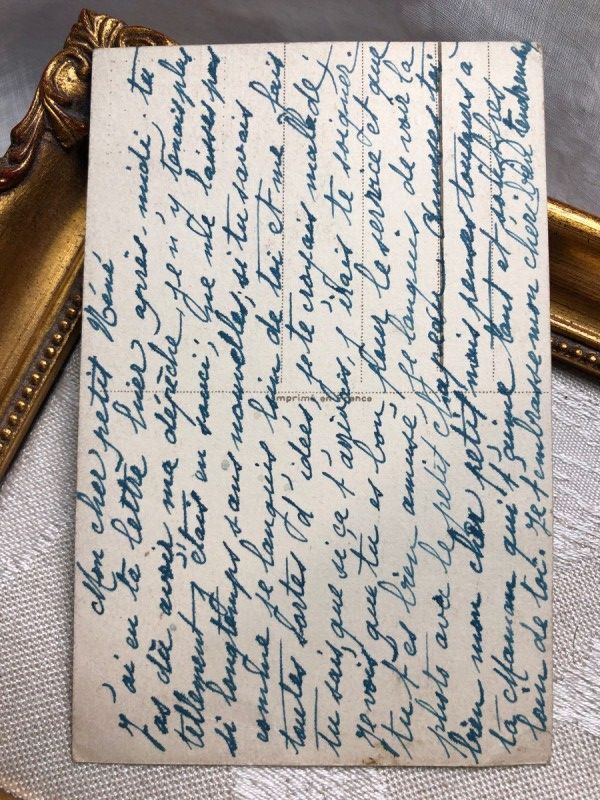 Mon cher petit Réné
J'ai eu ta lettre hier après-midi. tu
as dû avoir ma dépêche, je n'y tenais plus
tellement j'étais en souci, que me laisses pas
si longtemps sans nouvelles, si tu savais
combie je languis loin de toi et me fais
toutes sortes d'idées, je te croyais malade,
tu sais que si ça t'arrivais, j'irais te soigner.
Je vois que tu es bon pour le service et que
tu t'es bien amusé, je languis de voir la
photo avec le petit chapeau. Amuse toi
bien mon cher petit mais penses toujours à
ta Maman qui t'aime tant et souffre
loin de toi. Je t'embrasse mon cheri bien tendrement
Imprimé en France